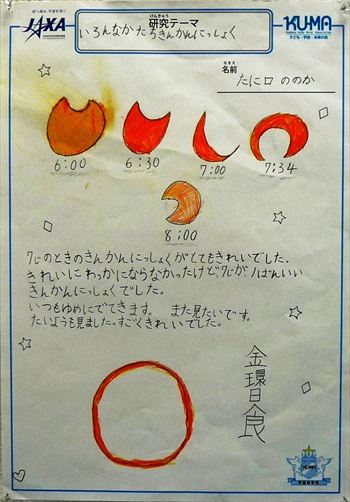 JAXA
けんきゅう
研究テーマ
KU-MA
子ども・宇宙・未来の会
いろんなかたちきんかんにっしょく
なまえ
名前
たに口 ののか
6:00
6:30
7:00
7:34
8:00
7じのときのきんかんにっしょくがとてもきれいでした。
きれいにわっかにならなかったけど7じが1ばんいい
きんかんにっしょくでした。
いつもゆめにでてきます。 また見たいです。
たいようも見ました。すごくきれいでした。
金環日食
KU-MA